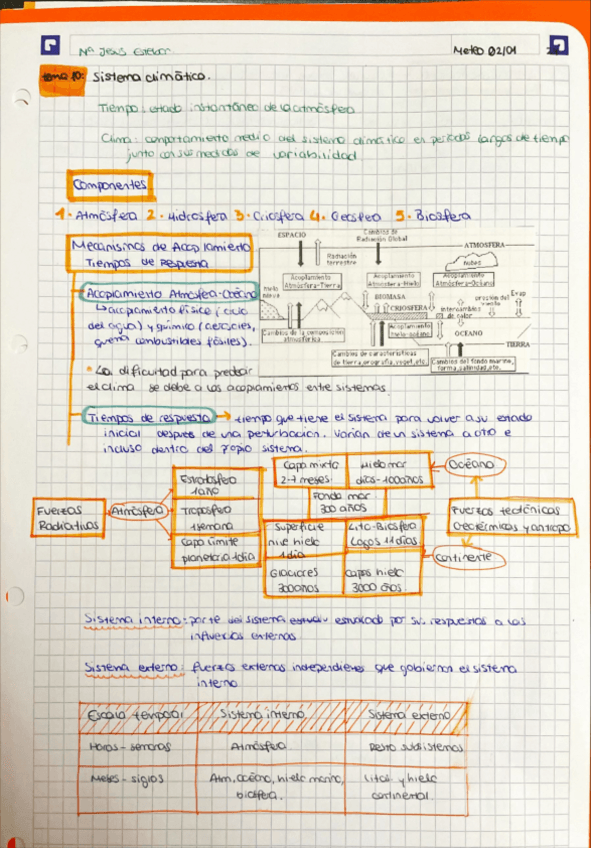 Mª Jesús Esteban
Meteo 02/01
tema 10: Sistema climático.
Tiempo: estado instantáneo de la atmósfera
Clima: comportamiento medio del sistema climático en periodos largos de tiempo
junto con sus medidas de variabilidad
Componentes
1. Atmósfera 2. Hidrosfera 3. Criosfera 4. Geosfera 5. Biosfera
Mecanismos de Acoplamiento
Tiempos de respuesta
ESPACIO
Cambios de
Radiación Global
ATMOSFERA
Radiación
terrestre
nubes
Acoplamiento
Atmósfera-Tierra
Acoplamiento
Atmósfera-Hielo
Acoplamiento
Atmósfera-Océano
hielo
nieve
BIOMASA
CRIOSFERA
intercambios
de calor
presion del
viento
Evap
Cambios de la composición
atmosférica
Acoplamiento
hielo-océano
OCEANO
TIERRA
Cambios de características
de tierra, orografía, veget., etc.
Cambios del fondo marino,
forma, salinidad, etc.
Acoplamiento Atmósfera-Océano
↳ acoplamiento físico (ciclo
del agua) y químico (aerosoles,
quema combustibles fósiles).
• La dificultad para predecir
el clima se debe a los acoplamientos entre sistemas
Tiempos de respuesta → tiempo que tiene el sistema para volver a su estado
inicial después de una perturbación. Varían de un sistema a otro e
incluso dentro del propio sistema.
Fuerzas
Radiativas
Atmósfera
Estratosfera
1 año
Troposfera
1 semana
Capa límite
planetaria 1 día
Capa mixta
2-7 meses
Hielo mar
días-100 años
Fondo mar
300 años
Superficie
nive hielo
1 día
Lito-Biosfera
Lagos 11 días
Glaciares
300 años
Capas hielo
3000 años
Océano
Fuerzas tectónicas
Geotérmicas y antropo
Continente
Sistema interno: parte del sistema estudiado por sus respuestas a las
influencias externas
Sistema externo: fuerzas externas independientes que gobiernan el sistema
interno
Escala temporal
Sistema interno
Sistema externo
Horas - semanas
Atmósfera
Resto subsistemas
Meses - siglos
Atm, océano, hielo marino,
biosfera.
Litos. y hielo
continental.